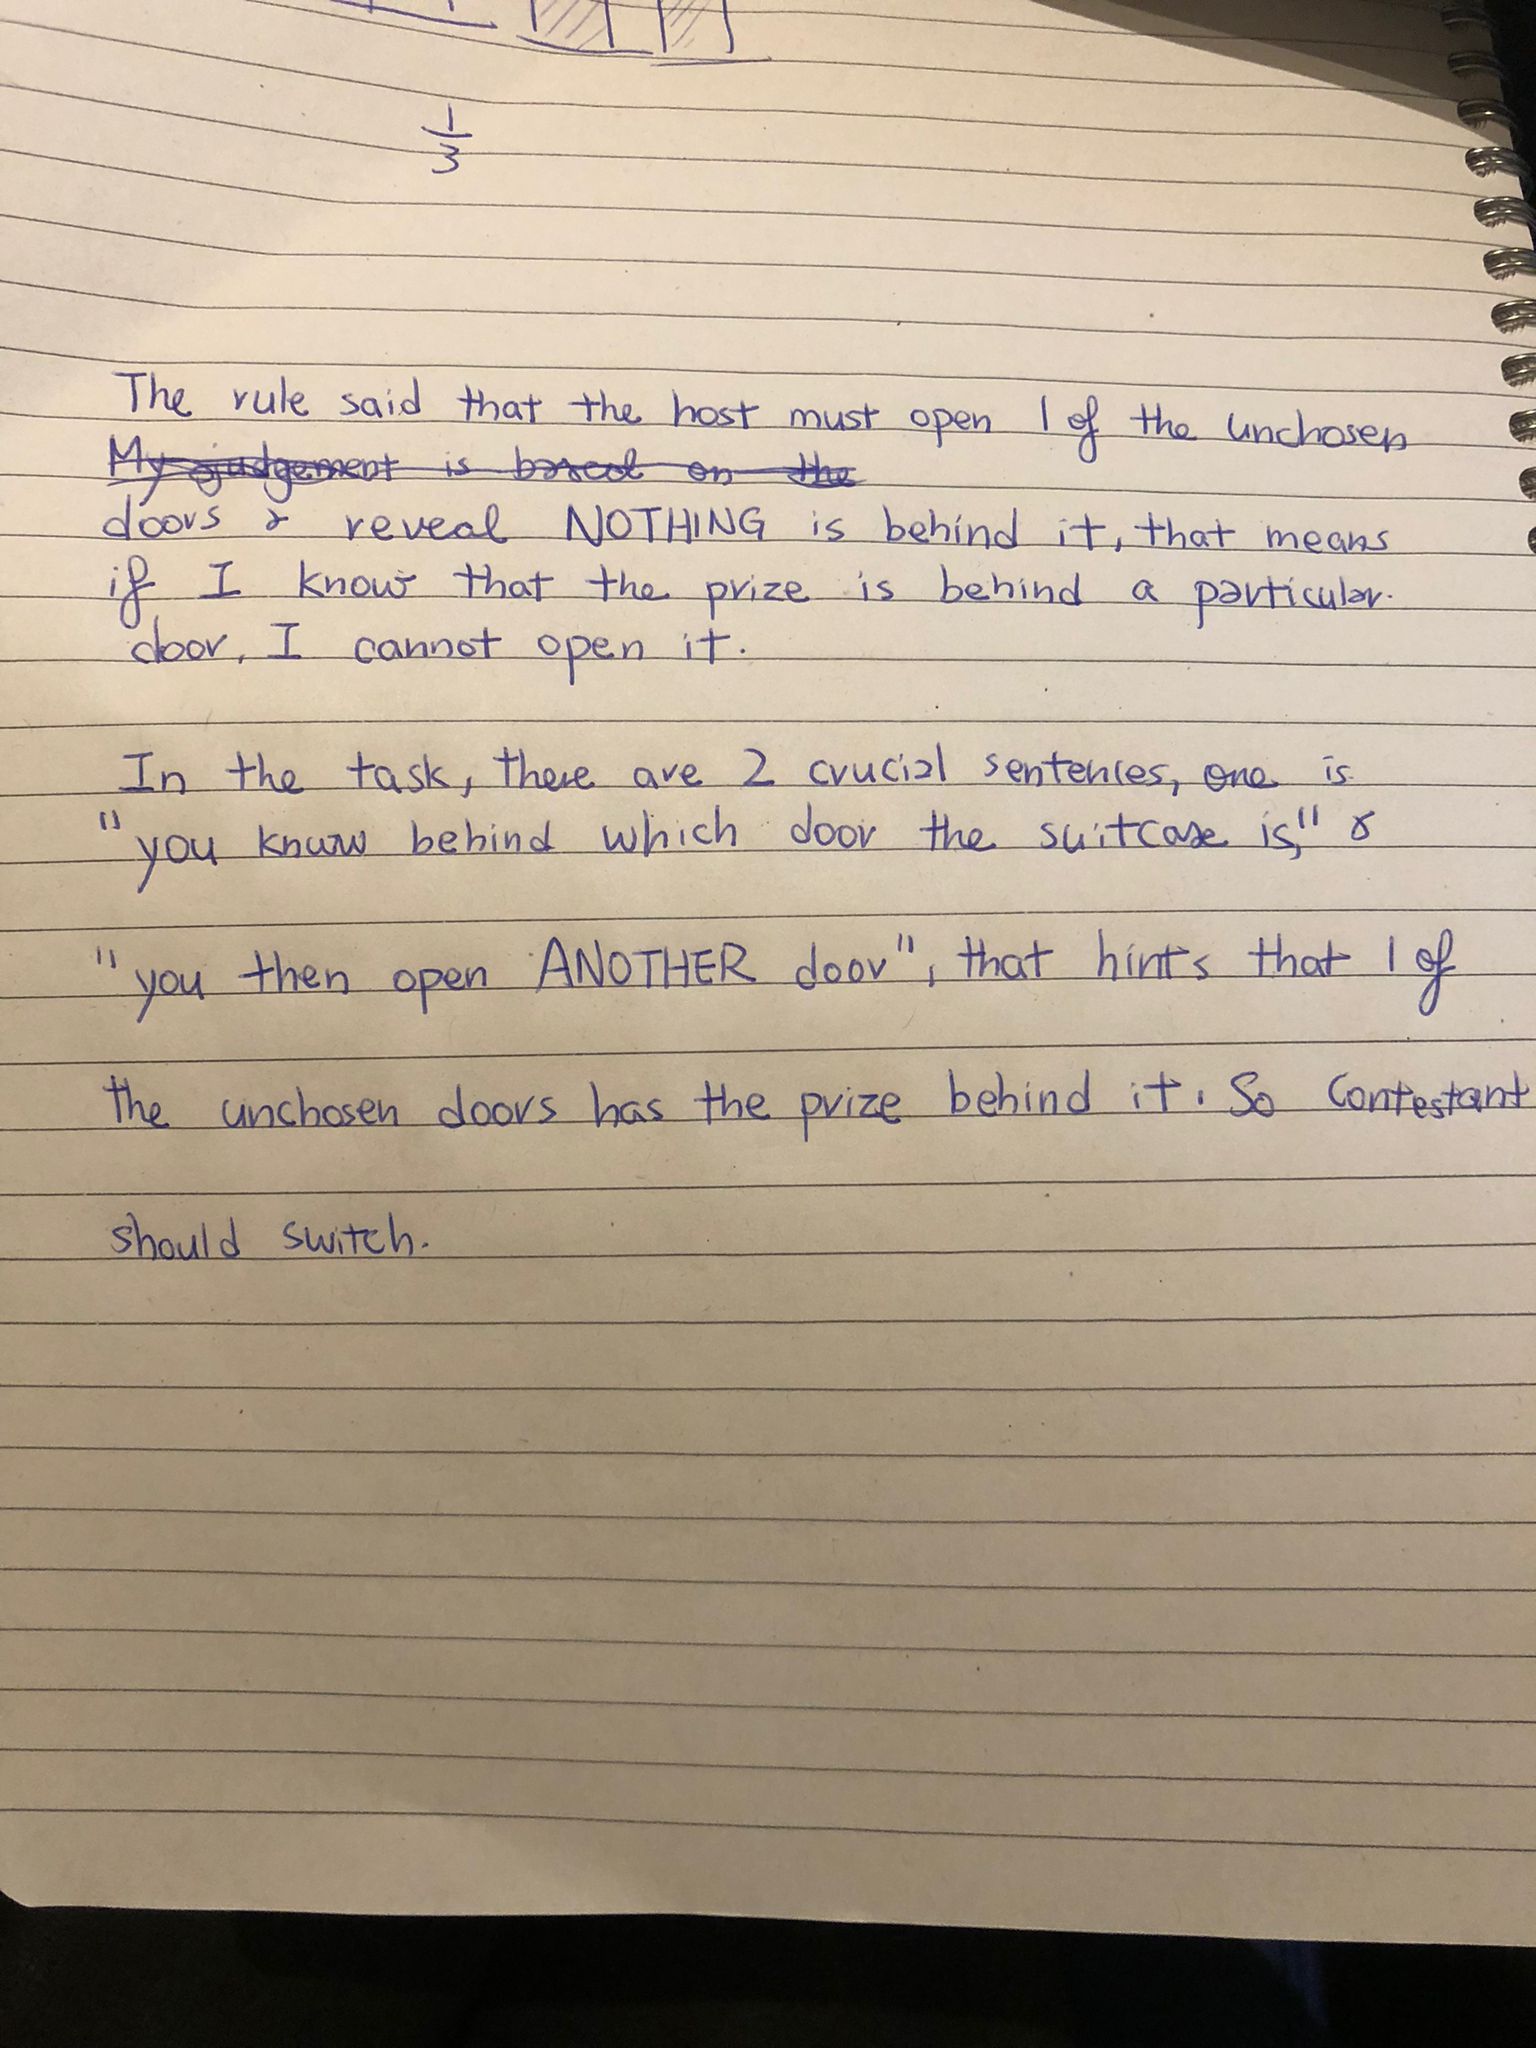 1
3
The rule said that the host must open 1 of the unchosen
My judgement is based on the
doors & reveal NOTHING is behind it, that means
if I know that the prize is behind a particular
door, I cannot open it.
In the task, there are 2 crucial sentences, one is
"you know behind which door the suitcase is," &
"you then open ANOTHER door", that hints that 1 of
the unchosen doors has the prize behind it. So Contestant
should switch.